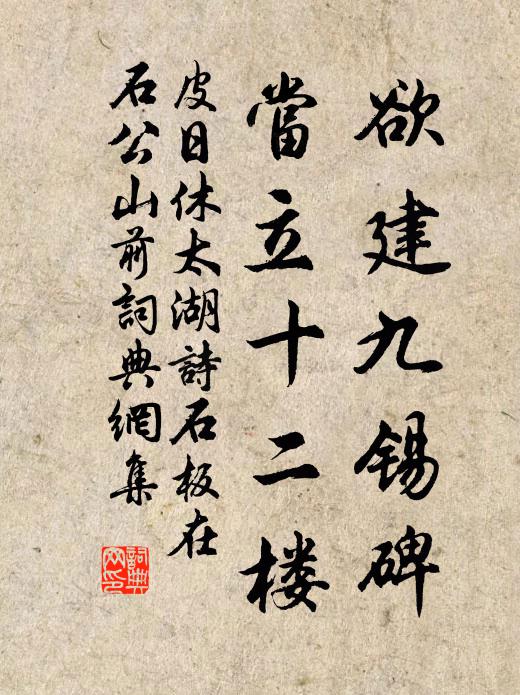 欲建九锡碑
當立十二楼
皮日休太湖詩石板在
石公山前詞典網集
詞典
网印